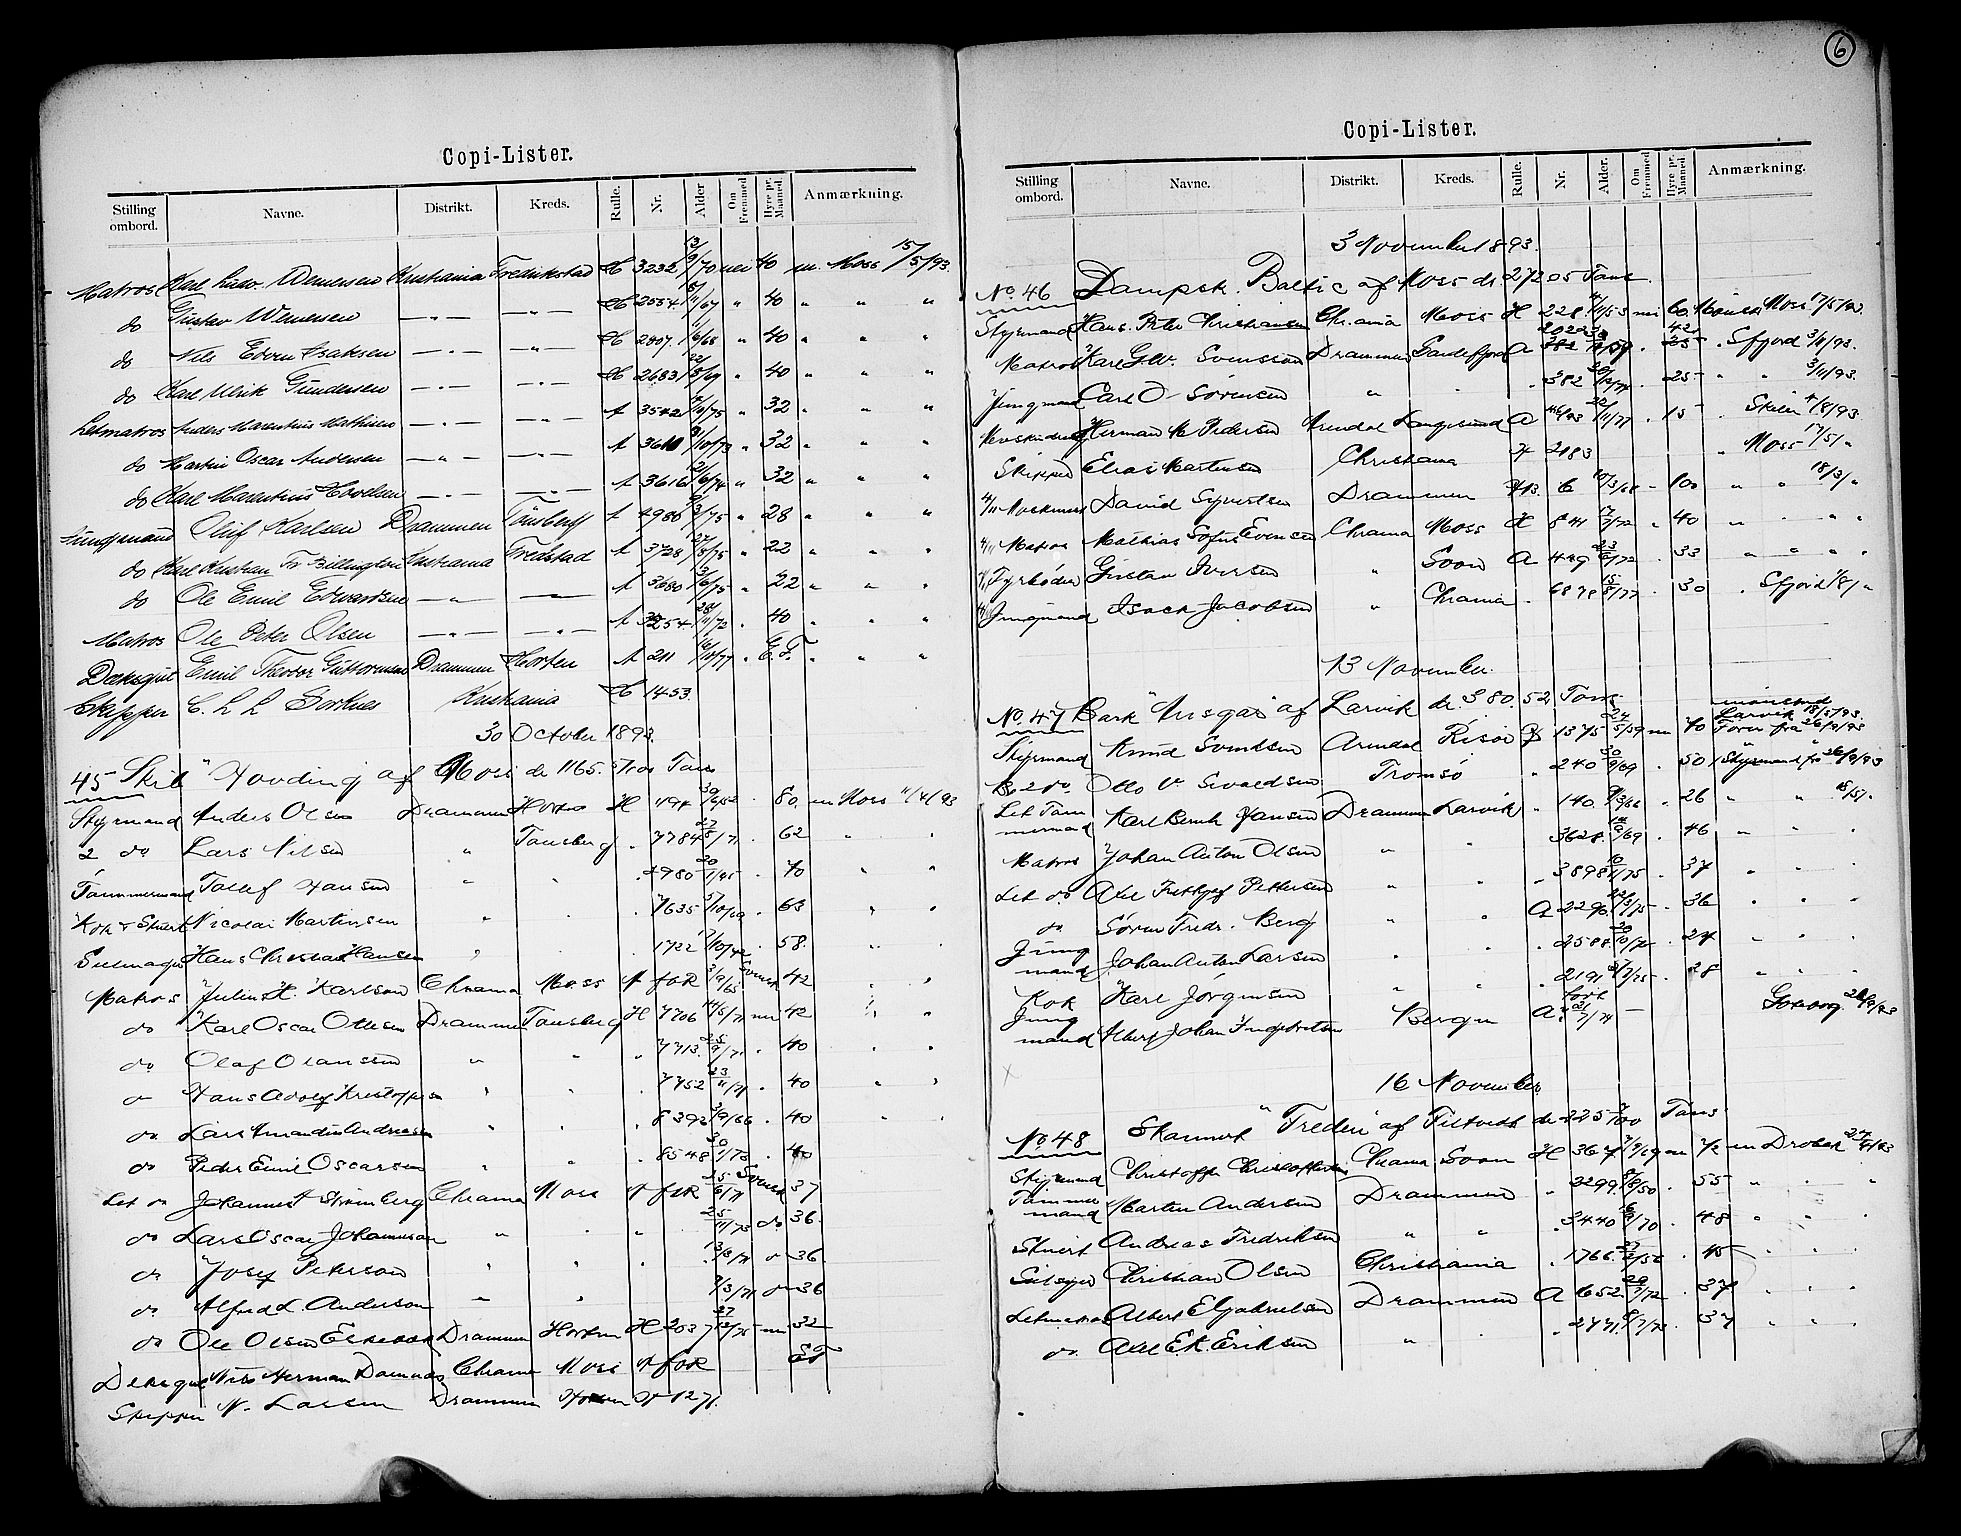 Copi-Lister.
Stilling ombord. Navne. Distrikt. Kreds. Rulle. Nr. Alder Om Fremmed Hyre pr. Maaned. Anmærkning.
Matros Karl Ludv. Wernersen Kristiania Fredrikstad 3232 13/9/70 nei 40 m. Moss 15/5/93.
do Gustav Wernersen 2554 /11/67 " 40 " " "
do Nils Edvin Isaksen 2807 /6/68 " 40 " " "
do Karl Ulrik Gundersen 2683 22/8/69 " 40 " " "
Letmatros Anders Marentius Mathisen A 3542 /75 " 32 " " "
do Martin Oscar Andersen A 3610 /10/73 " 32 " "
do Karl Marentius A 3616 21/6/74 " 32 " " "
Jungmand Oluf Karlsen Drammen Tönsberg A 4986 /3/75 " 28 " " "
do Karl Kristian Fr Billington Kristiania Fredstad A 3728 27/8/75 " 22 " " "
do Ole Emil Edvardsen A 3680 3/6/75 " 22 " " "
Matros Ole Peter Olsen A 3254 28/11/70 " 40 " " "
Dæksgut Emil Theodor Guttormsen Drammen Horten A 211 /10/77 " E.F. " " "
Skipper C. L. L. Kristiania 1453
30 October 1893.
45 Skib "Hövding" af Moss dr. 1165. Tons
Styrmand Anders Olsen Drammen Horten H 494 30/6/52 . 80 m Moss 11/4/93
2 do Lars Nilsen " Tönsberg . 7784 27/8/71 . 62 . .
Tömmermand Tollef Hansen " . . 4980 20/1/45 . 70
Kok & Stuert Nicolai Martinsen " . . 7635 5/10/ . 63
Seilmager Hans Christian Hansen " . 1722 /10/42 . 58
Matros Julius H. Karlson Chrania Moss A for 3/9/65 Svensk 42
do Karl Oscar Ottesen Drammen Tönsberg H 7706 14/5/71 nei 42
do Olaf Olausen " " . 7713 25/9/71 . 40
do Hans Adolf Kristoffersen . . 7752 23/11/71 . 40
do Lars Amandus Andreasen . . 8392 3/9/66 . 40
do Peder Emil Oscarsen . . 8548 30/1/73 . 40
Let do Johannes A Strömberg Chrania Moss A for 25/6/71 Svensk 37
do Lars Oscar Johannesson " . . 25/11/73 do 36.
do Josef Peterson . . . 13/8/71 do 36
do Alfred L. Anderson " . /3/71 do 36
do Ole Olsen Drammen Horten H 2037 27/12/75 nei 32
Dæksgut Nils Herman Chrania Moss A for EF
Skipper N. Larsen Drammen Horten A 1271.
6
Copi-Lister.
Stilling ombord. Navne. Distrikt. Kreds. Rulle. Nr. Alder. Om Fremmed Hyre pr. Maaned. Anmærkning.
3 November 1893.
No. 46 Dampsk. Baltic af Moss dr. 272 05 Tons
Styrmand Hans Peter Christiansen Chrania Moss H 228 /10/53 nei 60 Mönstr Moss 17/5/93.
Matros Karl G. W. Svensson Drammen Sandefjord A 382 /59 . 42 25 . Sfjord 3/11/93.
Jungmand Carl O. Sörensen " . . 382 20/12/74 . 25 " " 3/11/93.
Herman M Pedersen Arendal Langesund A 46/93 22/11/77 . 15 . Skien 4/8/93
Skipper Elias Martinsen Christiania 2183 . Moss 17/5/ "
4/11 Maskinist David Syvertsen Drammen 6 10/3/68 - 100 " " 18/3/ "
4/11 Matros Mathias Sofus Evensen Chrania Moss H 841 17/7/72 . 40 " . . "
4/11 Fyrböder Gustav Iversen " Soon A 449 23/6/72 . 33 " " " "
4/11 Jungmand Isack Jacobsen " Chrania . 6878 15/8/77 . 30 . Sfjord 1/8/ "
13 November
No. 47 Bark "Ansgar" af Larvik dr. 380,52 Tons mönstred Larvik 18/5/93.
Styrmand Knud Svendsen Arendal Risör 1375 24/5/59 nei 70 Fören fra 26/9/93
B. 2 do. Otto V. Sivaldsen Tromsö . 240 30/9/69 . 50 Styrmand fra 26/9/93
Let Tömmermand Karl Bernh Hansen Drammen Larvik . 140. 9/3/66 . 26 " " 18/5/ .
Matros Johan Anton Olsen " . 3628. 14/9/69 . 46 " . .
Let do Axel Fritjof Pettersen . . . 3898 10/1/75 . 37 " . .
do Sören Fredr. Berg . . A 2290. 22/3/75 . 36 . . .
Jungmand Johan Anton Larsen . . . 2588 20/10/76 . 24 " . .
Kok Karl Jörgensen " . . 2191 /7/75 . 28 " . .
Jungmand Albert Johan Ingebretsen Bergen A. 21/7/74 — Göteborg 26/9/93
16 November
No. 48 Skonnert "Freden" af Filtvedt dr. 225 7/100 Tons
Styrmand Christoffer Christoffersen Chrania Soon H 367 /9/69 nei 72 m Dröbak 27/4/93
Tömmermand Martin Andersen Drammen . 3299. 8/8/50 . 55 " . "
Stuert Andreas Fredriksen " " . 3440 16/9/70 . 48 " . .
Seilsyer Christian Olsen Christiania . 1766 27/2/56 . 45 . . .
Letmatros Albert E Gabrielsen Drammen A 652. 29/9/72 . 37 . . .
do. Axel E. K. Eriksen " . 2771. 8/7/73 . 37 . . .